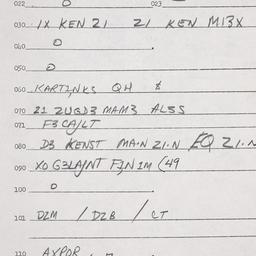 022 0 023
030 1X KEN Z1 Z1 KEN M13X
040 0
050 0
060 QH &
070 21 ZUGD3 MAM3 AL3S
071 F3CA/LT
080 D3 KENST MA·N Z1·N EQ Z1·N
090 XO G3LA/NT F1N1M (49
100 0
101 DZM / DZB / CT
110 AXPOR